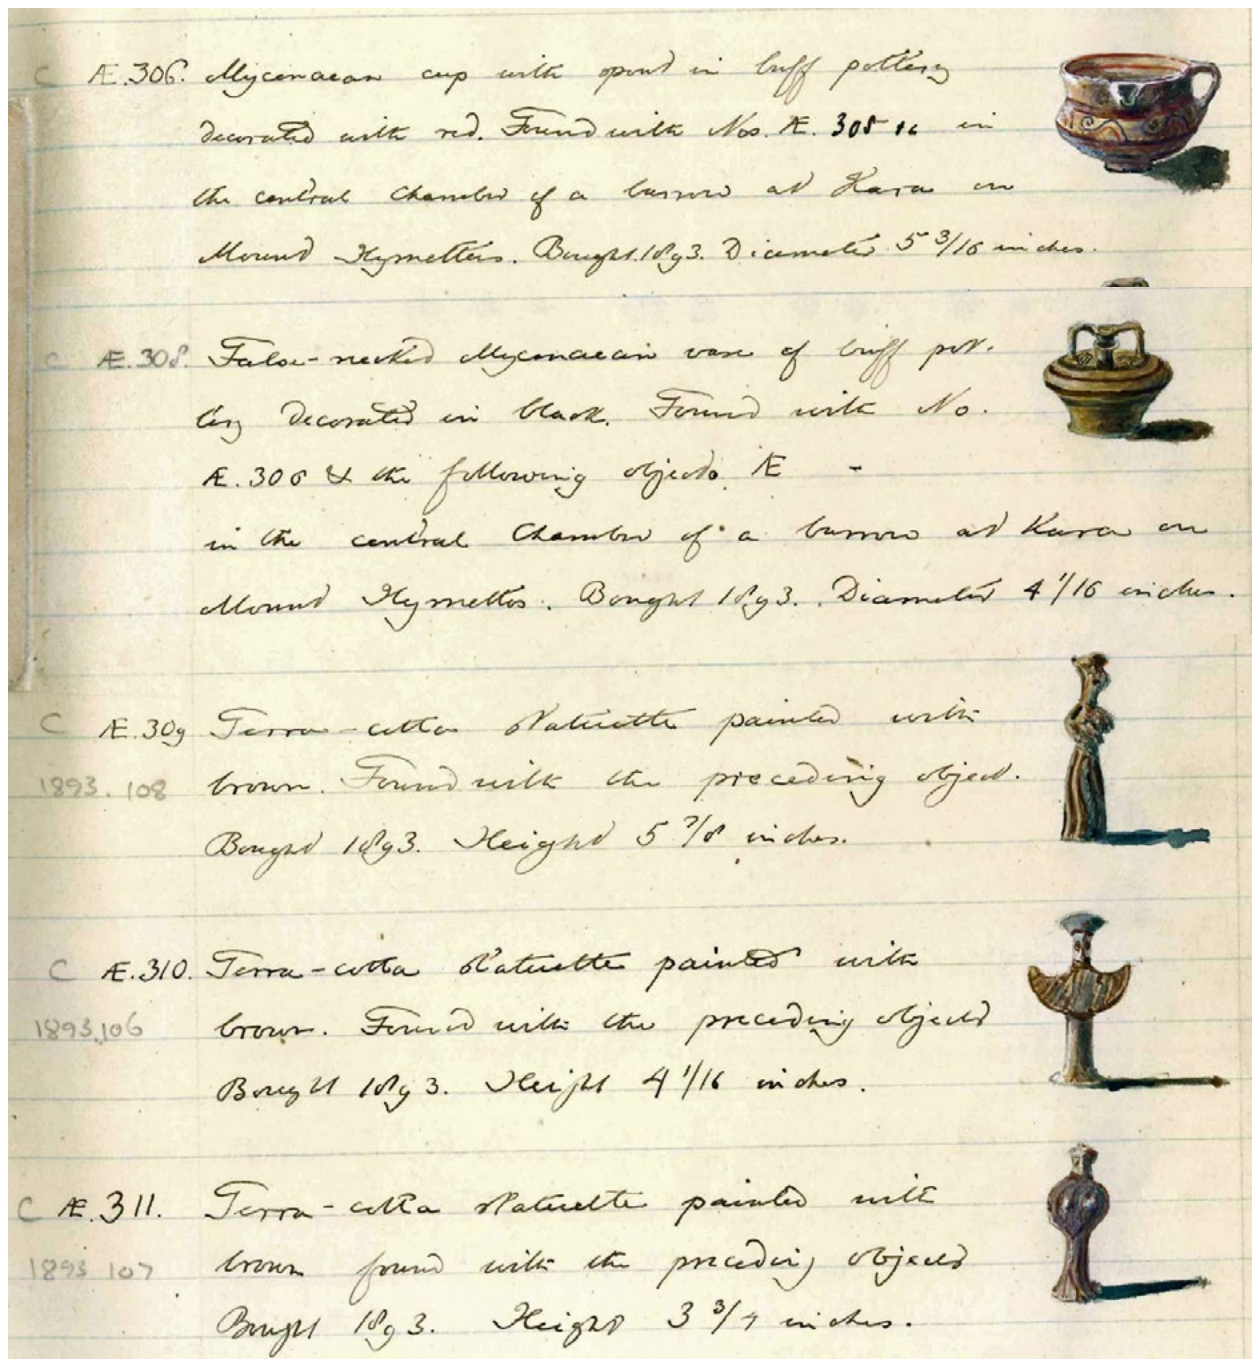 C Æ.306. Mycenaean cup with spout in buff pottery
decorated with red. Found with Nos. Æ. 308 in
the central chamber of a barrow at Kara on
Mount Hymettus. Bought 1893. Diameter 5 3/16 inches.
C Æ.308. False-necked Mycenaean vase of buff pot-
tery decorated in black. Found with No.
Æ.306 & the following objects Æ -
in the central Chamber of a barrow at Kara on
Mount Hymettos. Bought 1893. Diameter 4 1/16 inches.
C Æ.309 Terra-cotta statuette painted with
1893.108 brown. Found with the preceding object.
Bought 1893. Height 5 7/8 inches.
C Æ.310. Terra-cotta statuette painted with
1893.106 brown. Found with the preceding objects
Bought 1893. Height 4 1/16 inches.
C Æ.311. Terra-cotta statuette painted with
1893 107 brown found with the preceding objects
Bought 1893. Height 3 3/4 inches.